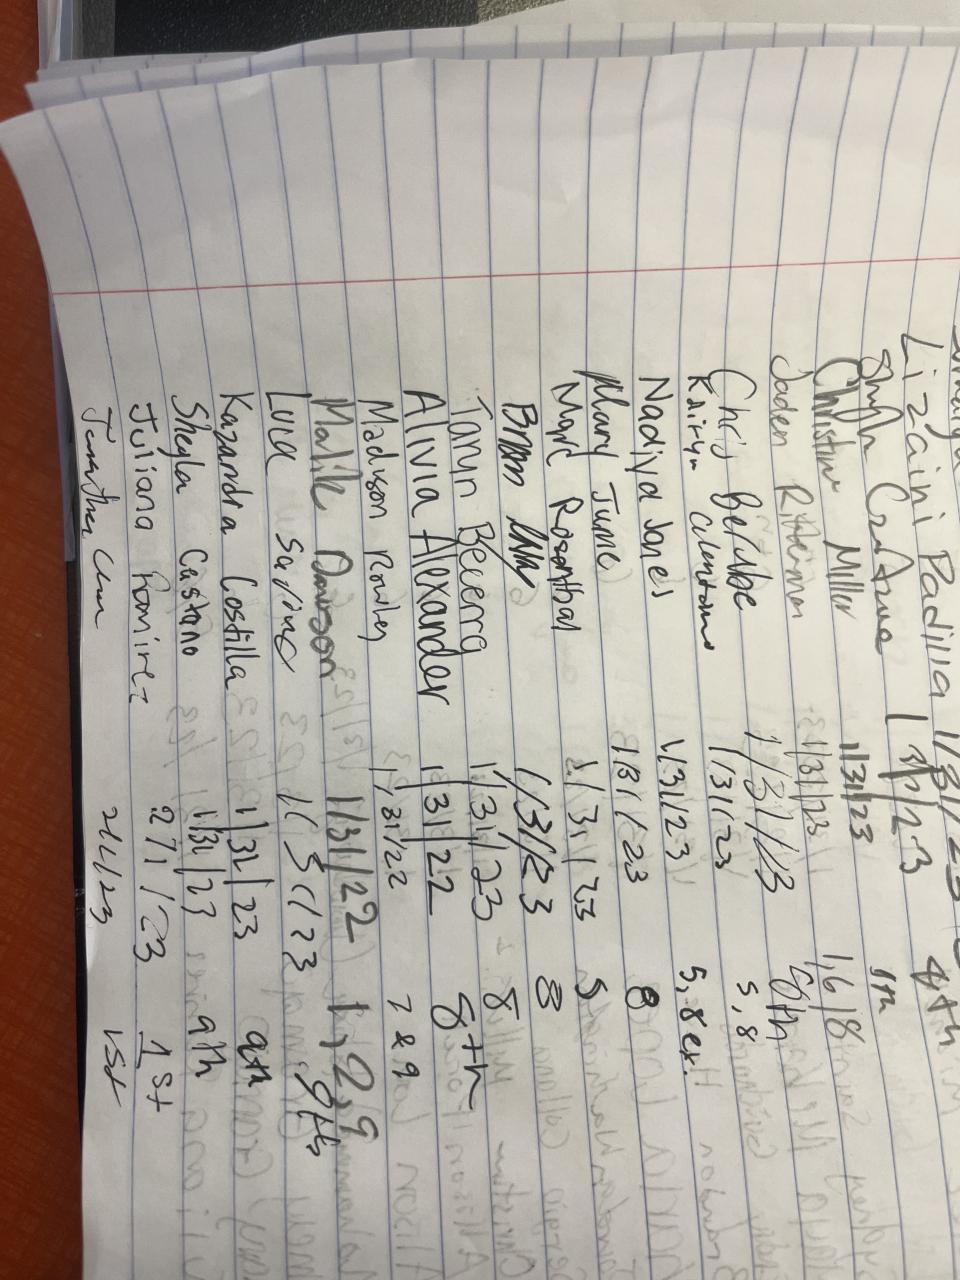 Lizaini Padilla 1/31/23 4th
Shyla 1/31/23 1th
Christine Miller 1/31/23 1,6,8
Jaden 1/31/23 8th
Chris Berube 1/31/23 5,8
Kairyn 1/31/23 5,8 ex.
Nadiya Jones 1/31/23 8
Mary June 1/31/23 5
Marc Rosenthal 1/31/23 8
1/31/23 8
Taryn Becerra 1/31/23
Alivia Alexander 1/31/22 8th
Madison Rowley 1/31/22 7 & 9
Malik Dawson 1/31/22 1,2,9
Luca 1/31/23 9th
Kazandra Costilla 1/31/23 9th
Sheyla Castano 1/31/23 9th
Juliana Ramirez 2/1/23 1st
Jonathan 2/1/23 1st